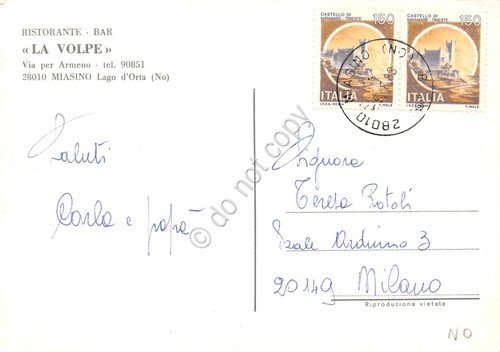 RISTORANTE - BAR
« LA VOLPE »
Via per Armeno - tel. 90851
28010 MIASINO Lago d'Orta (No)
CASTELLO DI
MIRAMARE - TRIESTE
150
ITALIA
CASTELLO DI
MIRAMARE - TRIESTE
150
ITALIA
28010 MIASINO (NO)
Saluti
Carla e papà
Signora
Teresa Rotoli
P.zale Arduino 3
20149 Milano
Riproduzione vietata
NO
do not copy